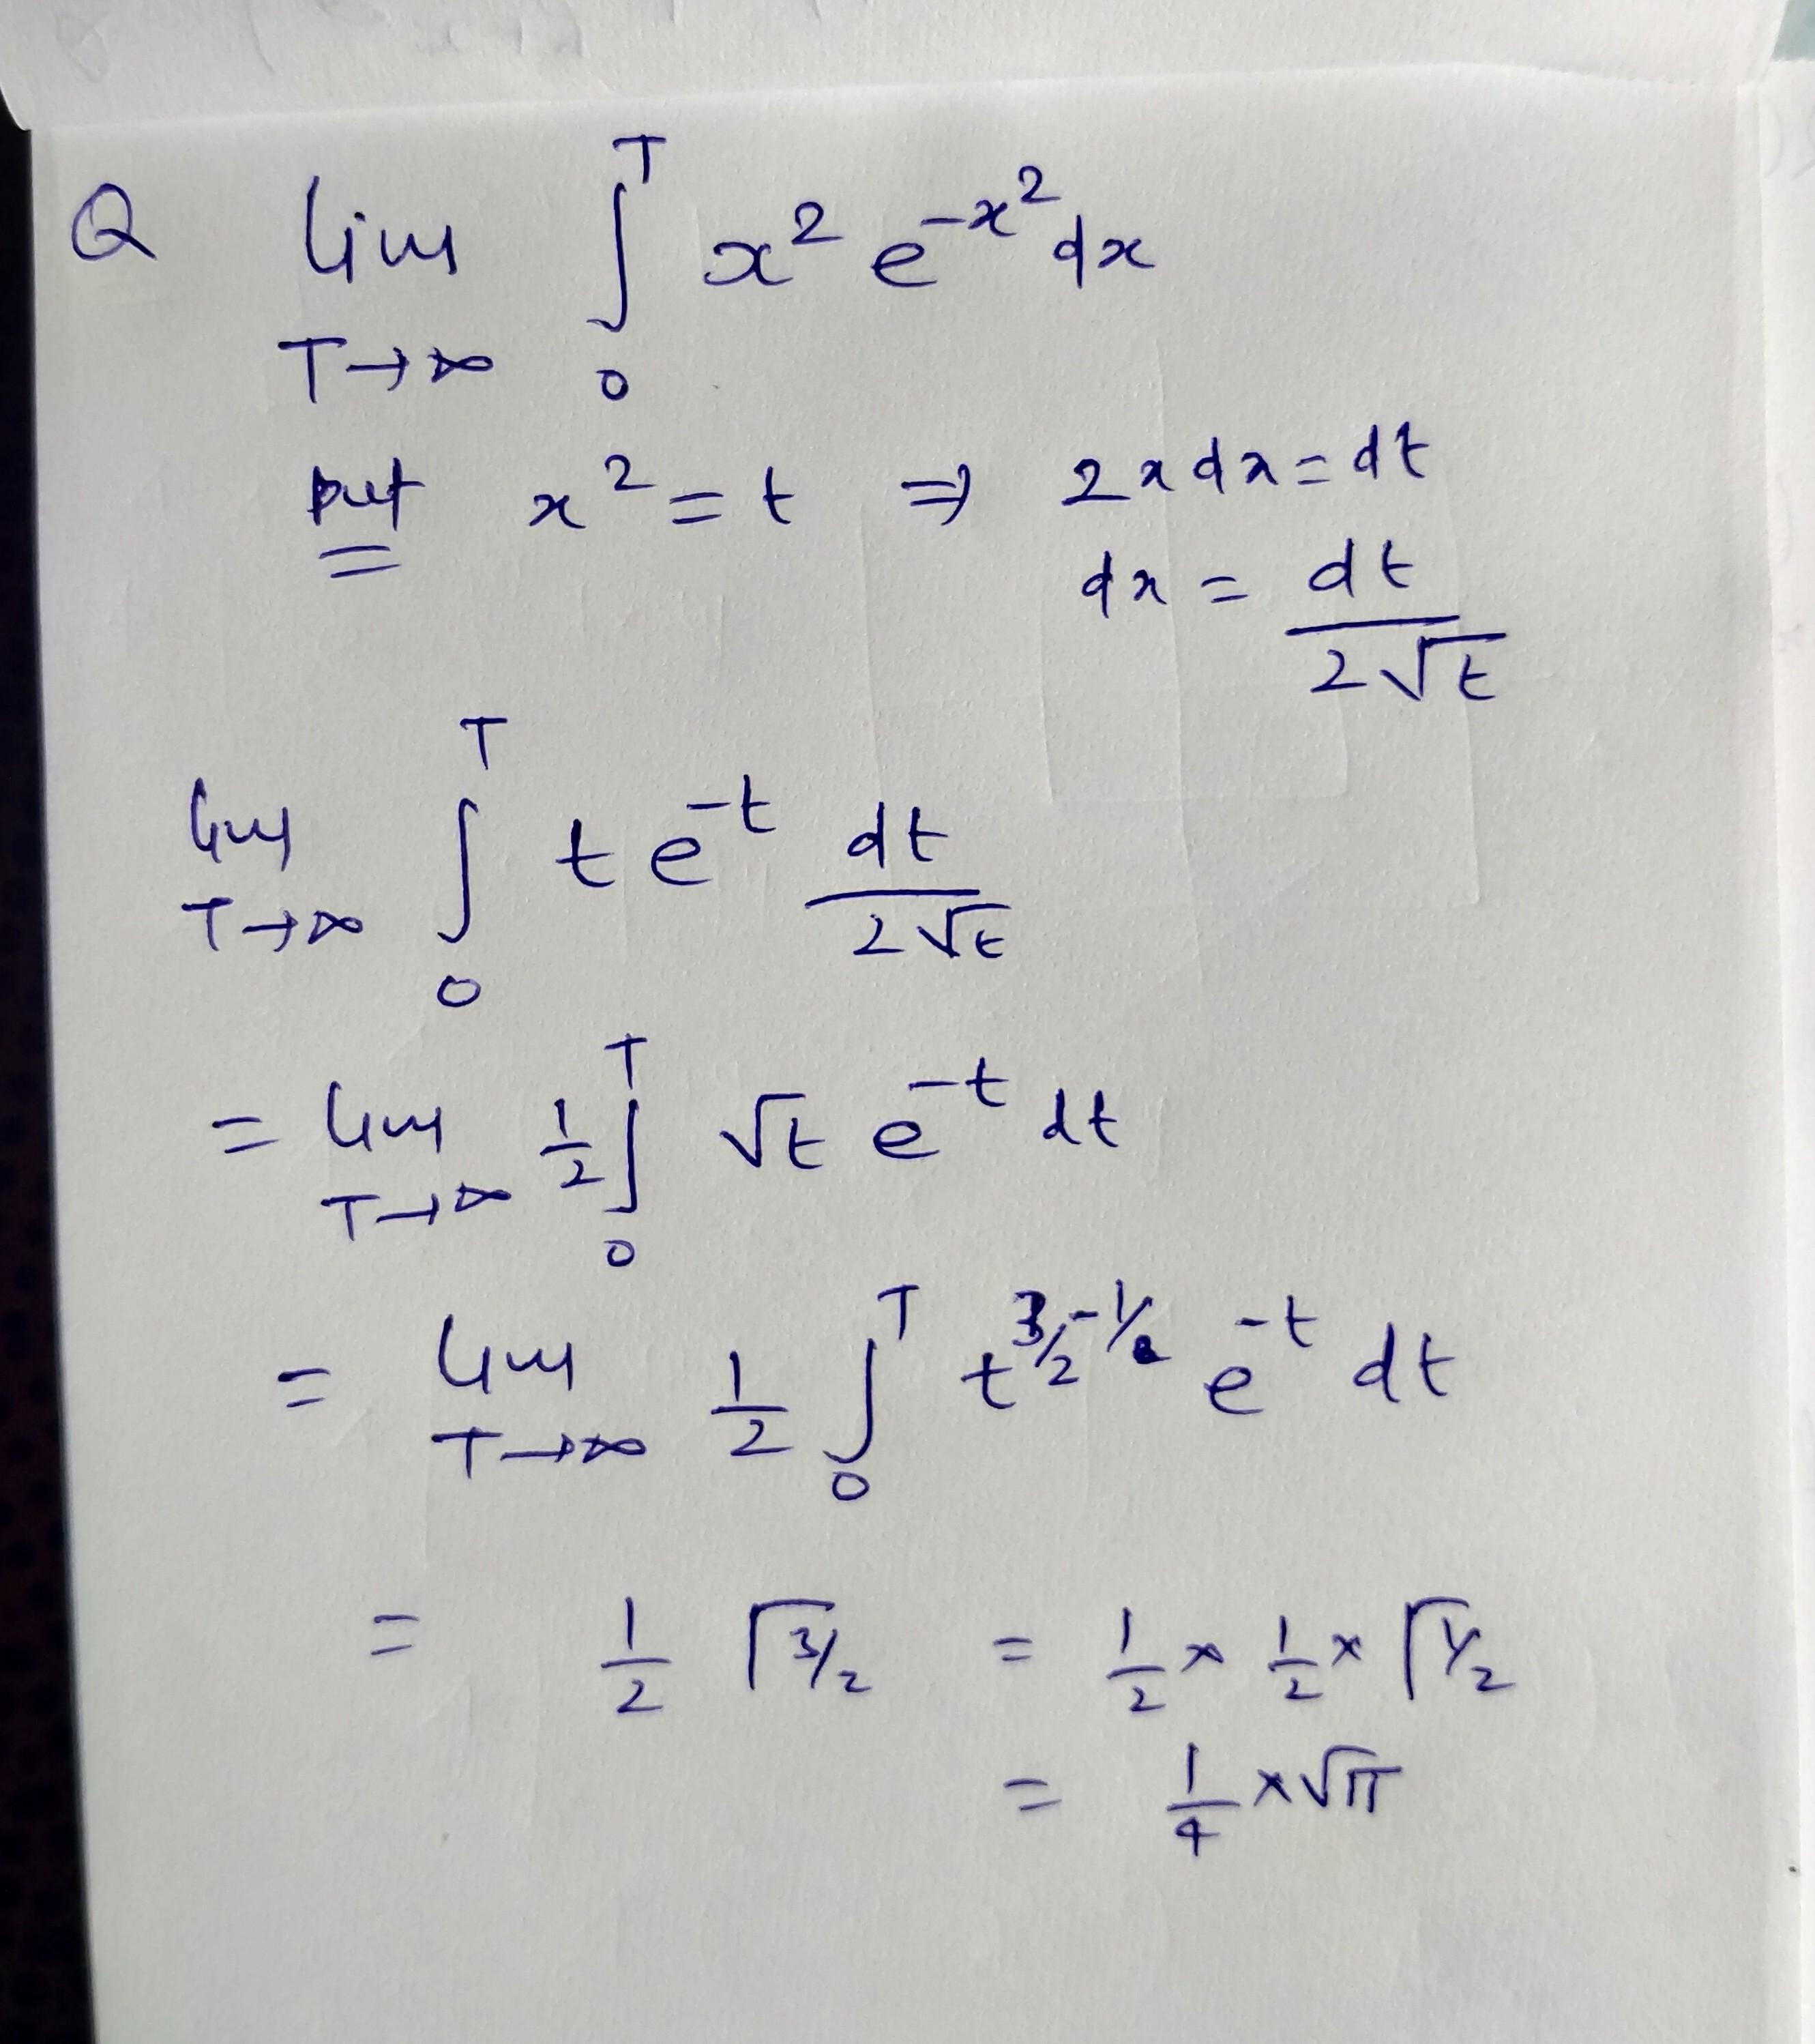 Q lim T→∞ ∫₀ᵀ x² e^(-x²) dx
put x² = t ⇒ 2x dx = dt
dx = dt/(2√t)
lim T→∞ ∫₀ᵀ t e^(-t) dt/(2√t)
= lim T→∞ 1/2 ∫₀ᵀ √t e^(-t) dt
= lim T→∞ 1/2 ∫₀ᵀ t^(3/2-1) e^(-t) dt
= 1/2 Γ3/2 = 1/2 × 1/2 × Γ1/2
= 1/4 × √π